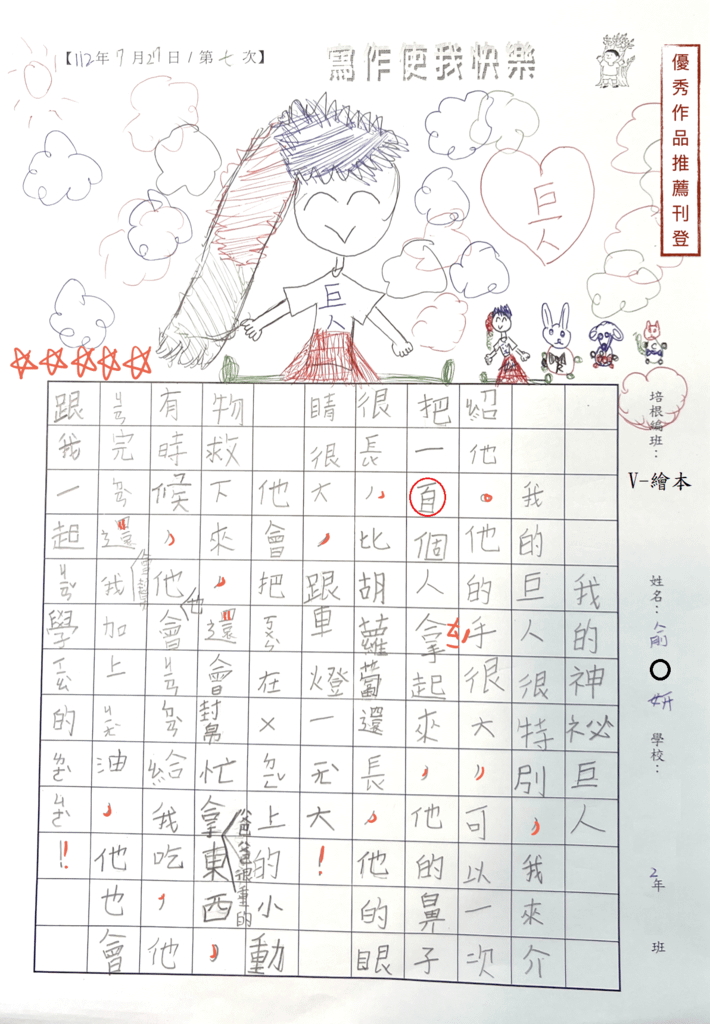 【112年7月27日/第七次】
寫作使我快樂
優秀作品推薦刊登
巨人
巨人
培根編班：
V-繪本
姓名：俞〇妍
學校：
2年 班
我的神祕巨人
我的巨人很特別，我來介
紹他。他的手很大，可以一次
把一百個人拿起來，他的鼻子
很長，比胡蘿蔔還長，他的眼
睛很大，跟車燈一大！
他會把在上的小動
物救下來，他還會幫忙拿爸爸很重的東西，
有時候，他會給我吃，他
完還會幫我加上油，他也會
跟我一起學的！